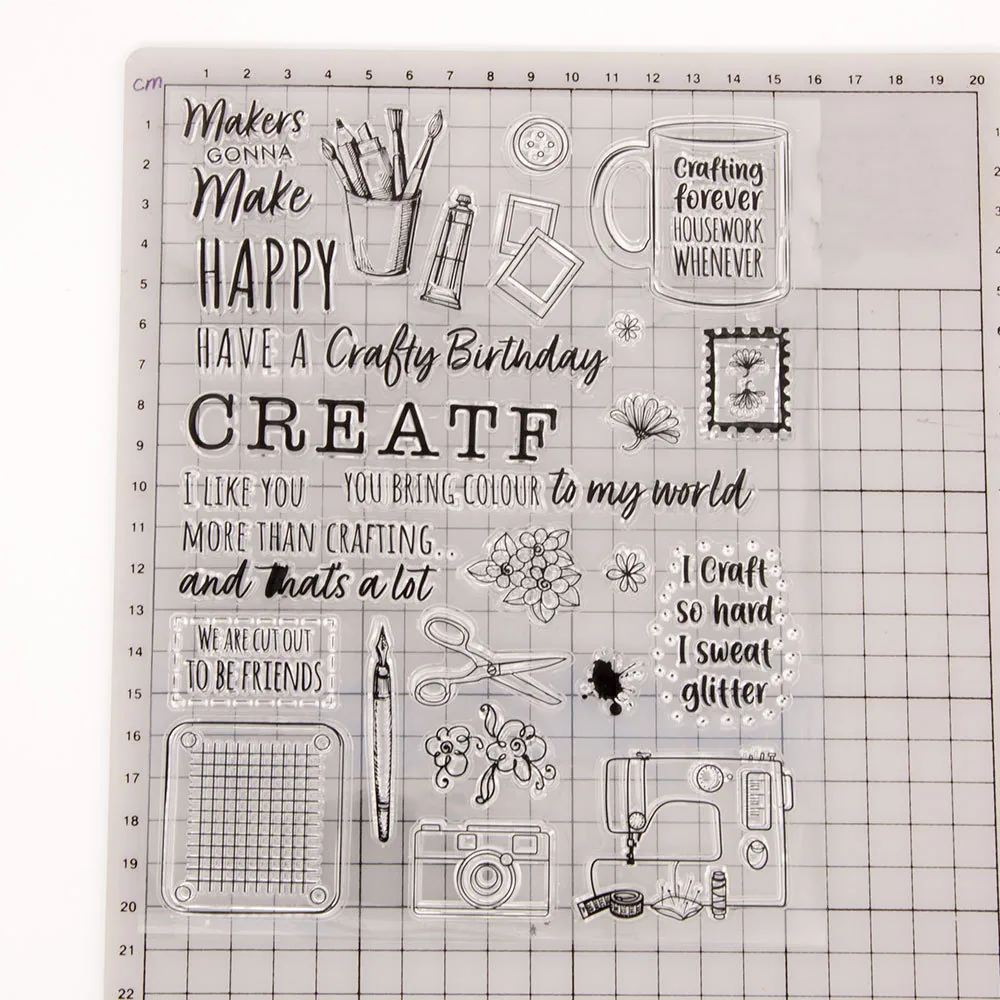 cm
1 2 3 4 5 6 7 8 9 10 11 12 13 14 15 16 17 18 19 20
1
2
3
4
5
6
7
8
9
10
11
12
13
14
15
16
17
18
19
20
21
22
Makers
GONNA
Make
HAPPY
Crafting
forever
HOUSEWORK
WHENEVER
HAVE A Crafty Birthday
CREATF
I LIKE YOU
YOU BRING COLOUR to my world
MORE THAN CRAFTING..
and that's a lot
I Craft
so hard
I sweat
glitter
WE ARE CUT OUT
TO BE FRIENDS